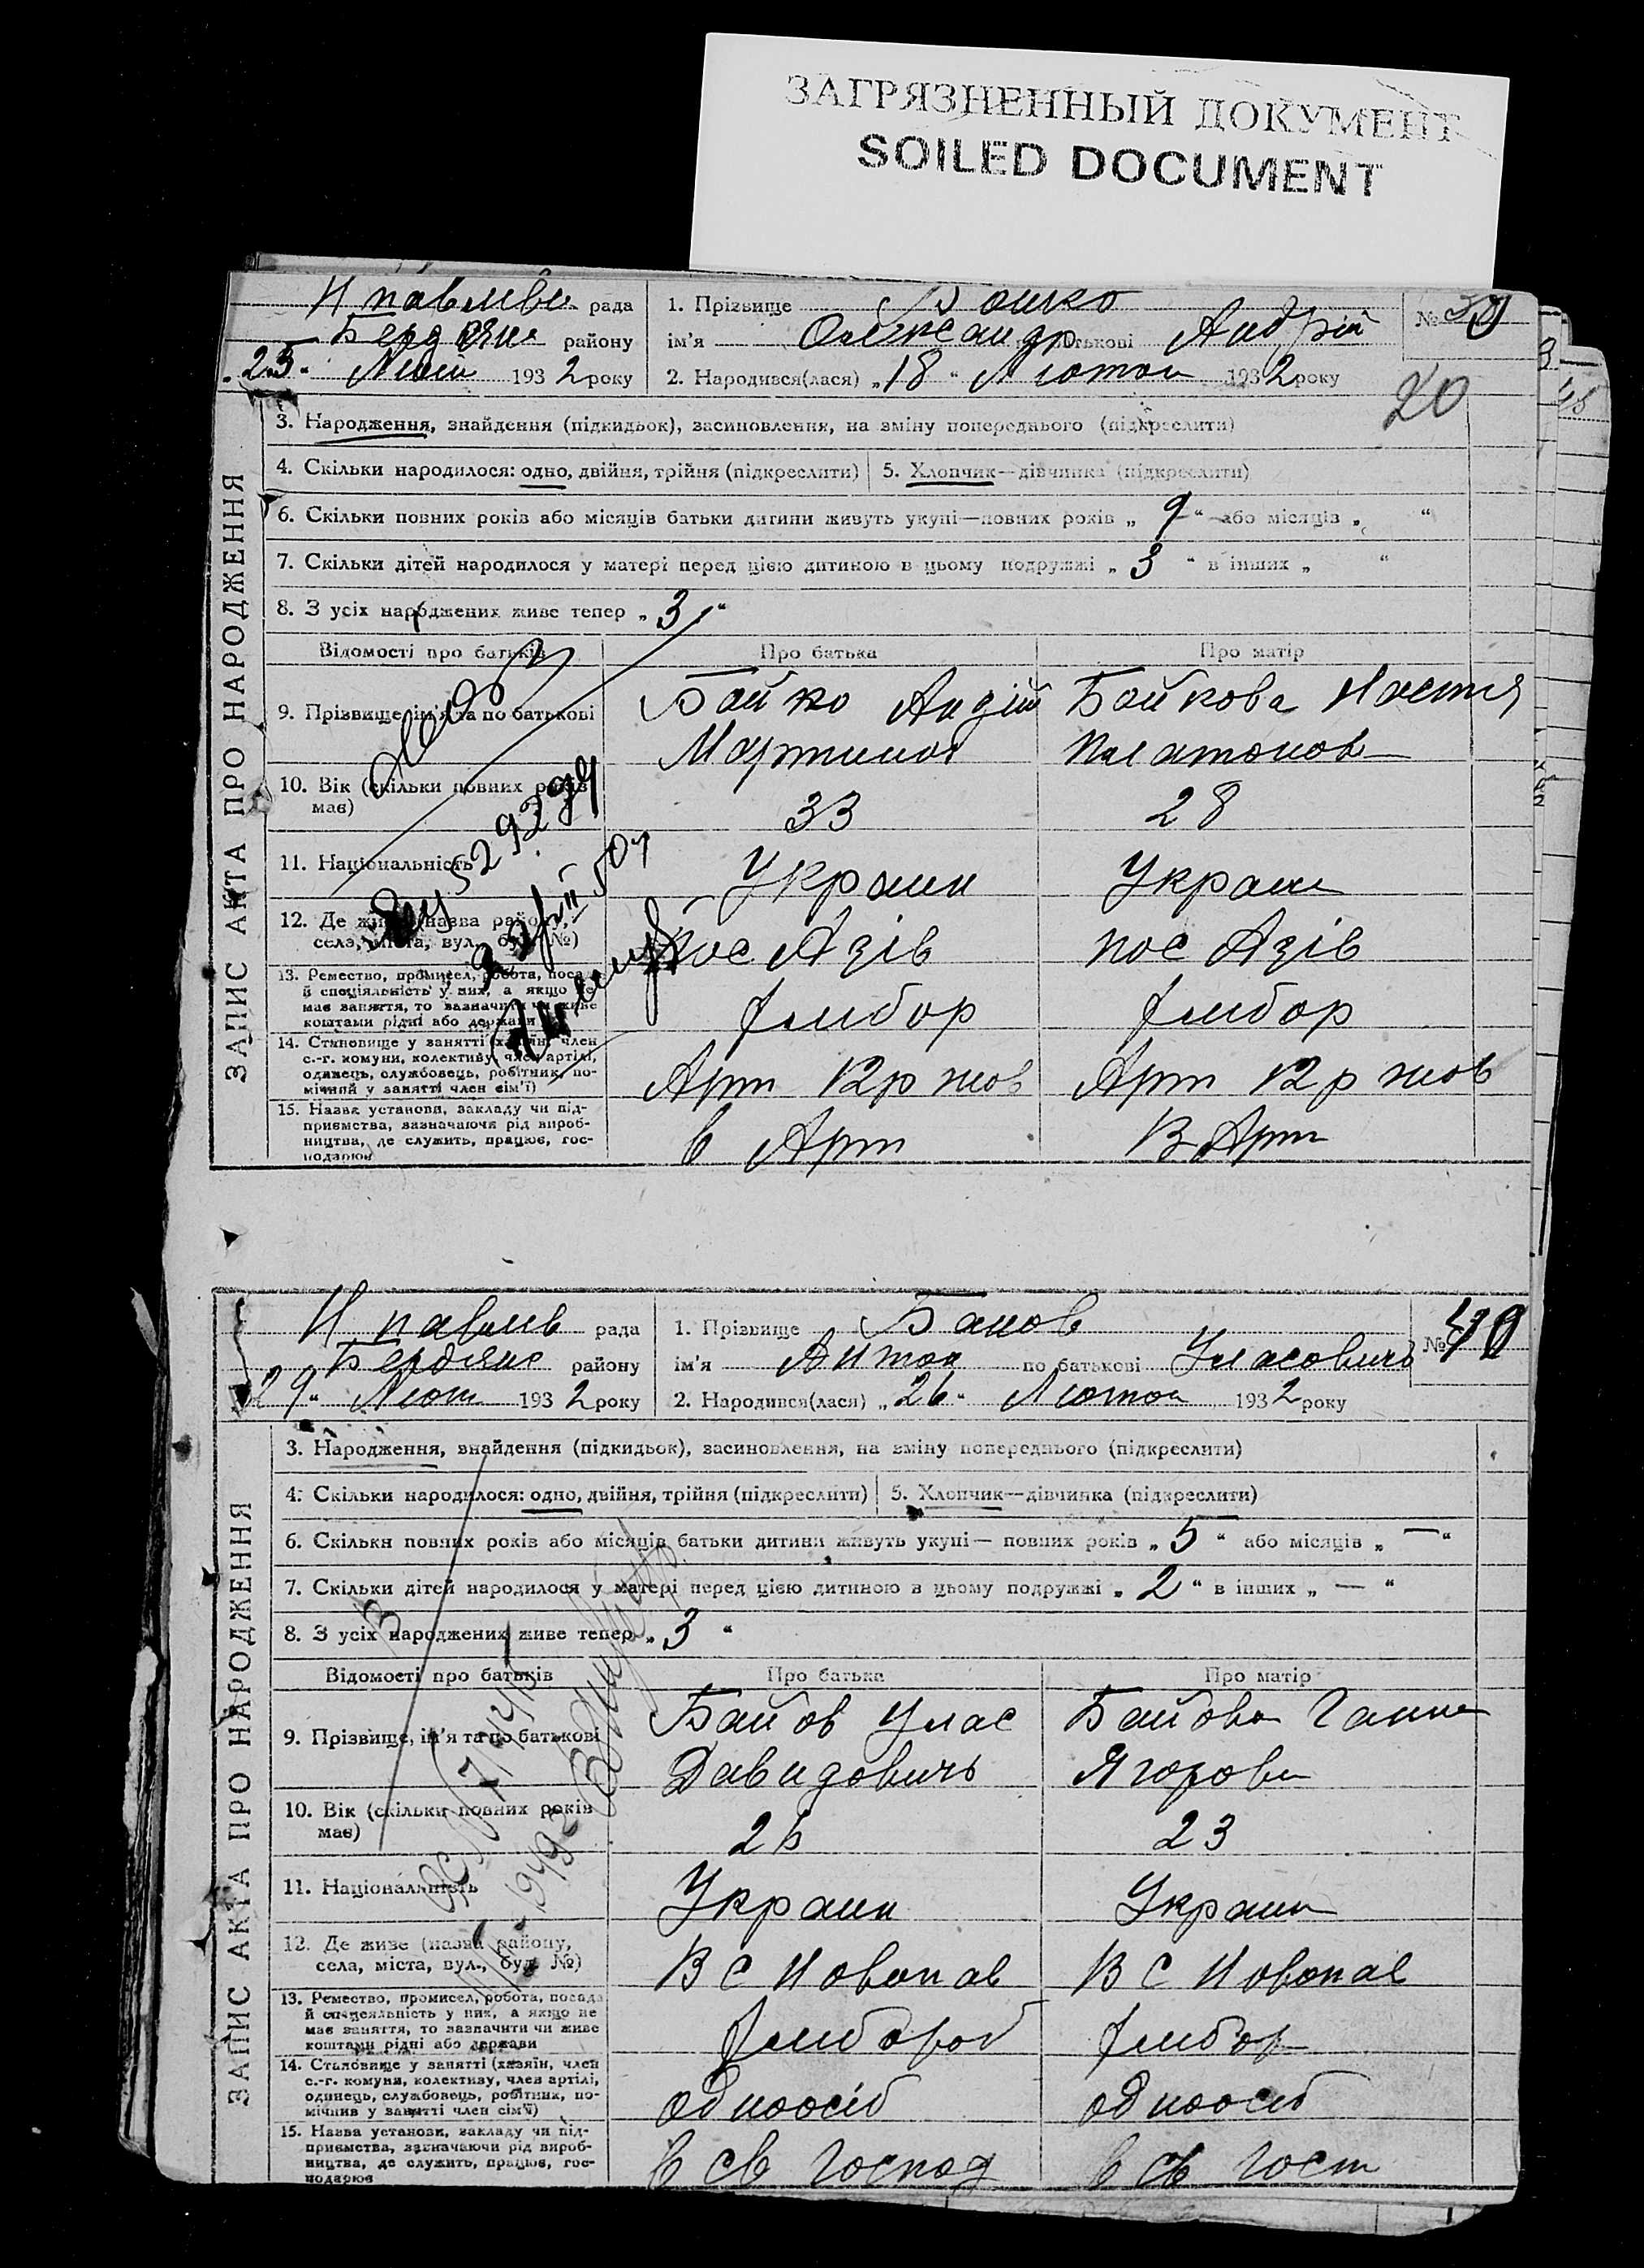 ЗАГРЯЗНЕННЫЙ ДОКУМЕНТ
SOILED DOCUMENT
Н павлівс рада
Бердянс району
"25" Лют 1932 року
1. Прізвище Бойко
ім'я Олександр по батькові Андрій
2. Народився(лася) "18" Лютого 1932 року
№ 39
20
ЗАПИС АКТА ПРО НАРОДЖЕННЯ
3. Народження, знайдення (підкидьок), засиновлення, на зміну попереднього (підкреслити)
4. Скільки народилося: одно, двійня, трійня (підкреслити)
5. Хлопчик—дівчинка (підкреслити)
6. Скільки повних років або місяців батьки дитини живуть укупі—повних років "9" або місяців " "
7. Скільки дітей народилося у матері перед цією дитиною в цьому подружжі "3" в інших " "
8. З усіх народжених живе тепер "3"
Відомості про батьків Про батька Про матір
9. Прізвище, ім'я та по батькові
Бойко Андій Байкова Настя
Мартинов Платонов
10. Вік (скільки повних років має)
33 28
11. Національність
Украин Украин
12. Де живе (назва району, села, міста, вул., буд. №)
пос Азів пос Азів
13. Ремество, промисел, робота, посада й спеціяльність у них, а якщо не має заняття, то зазначити чи живе коштами рідні або держави
хлибор хлибор
14. Становище у занятті (хазяїн, член с.-г. комуни, колективу, член артілі, одинець, службовець, робітник, помічний у занятті член сім'ї)
Арт 12р жов Арт 12р жов
15. Назва установи, закладу чи підприємства, зазначаючи рід виробництва, де служить, працює, господарює
в Арт В Арт
Н павлів рада
Бердянс району
"29" Лют 1932 року
1. Прізвище Байов
ім'я Антон по батькові Уласовичь
2. Народився(лася) "26" Лютого 1932 року
№ 40
ЗАПИС АКТА ПРО НАРОДЖЕННЯ
3. Народження, знайдення (підкидьок), засиновлення, на зміну попереднього (підкреслити)
4. Скільки народилося: одно, двійня, трійня (підкреслити)
5. Хлопчик—дівчинка (підкреслити)
6. Скільки повних років або місяців батьки дитини живуть укупі— повних років "5" або місяців "—"
7. Скільки дітей народилося у матері перед цією дитиною в цьому подружжі "2" в інших "—"
8. З усіх народжених живе тепер "3"
Відомості про батьків Про батька Про матір
9. Прізвище, ім'я та по батькові
Байов Улас Байова Ганна
Давидовичь Ягорови
10. Вік (скільки повних років має)
26 23
11. Національність
Украин Украин
12. Де живе (назва району, села, міста, вул., буд. №)
В С Новопав В С Новопав
13. Ремество, промисел, робота, посада й спецеяльність у них, а якщо не має заняття, то зазначити чи живе коштами рідні або держави
хлибороб хлибор
14. Становище у занятті (хазяїн, член с.-г. комуни, колективу, член артілі, одинець, службовець, робітник, помічник у занятті член сім'ї)
одноосіб одноосіб
15. Назва установи, закладу чи підприємства, зазначаючи рід виробництва, де служить, працює, господарює
в св господ в св гост